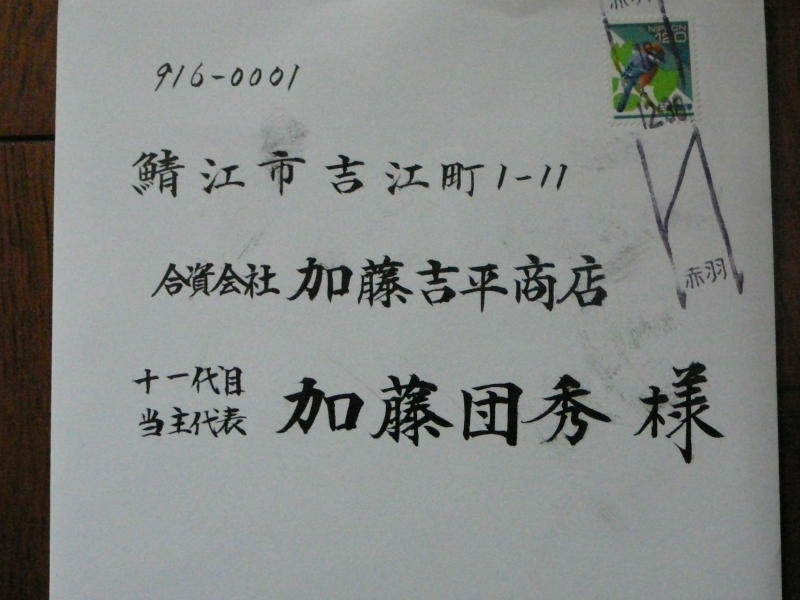 916-0001
鯖江市吉江町1-11
合資会社 加藤吉平商店
十一代目
当主代表 加藤団秀 様
NIPPON
赤羽
赤羽